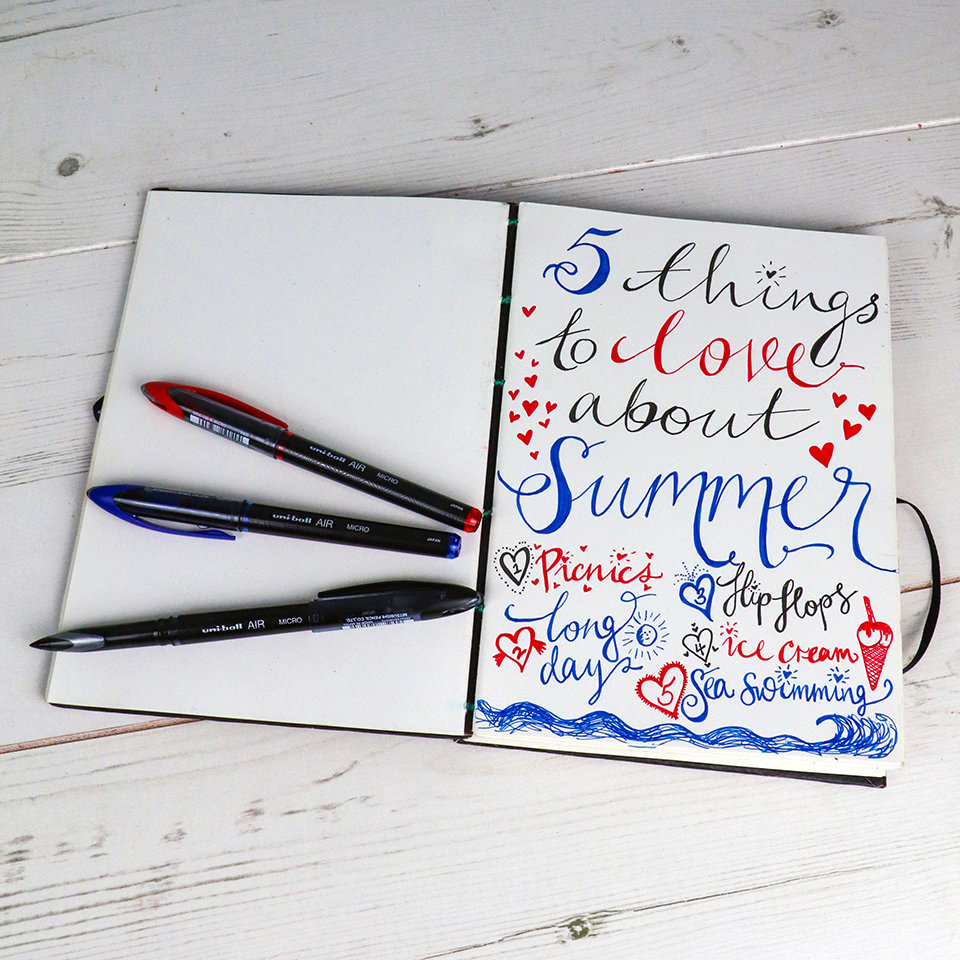 5 things
to love
about
Summer
1 Picnics
2 long
days
3 flip flops
4 ice cream
5 Sea swimming
uni-ball AIR MICRO
JAPAN
uni-ball AIR MICRO
JAPAN
uni-ball AIR MICRO
MITSUBISHI PENCIL CO., LTD.